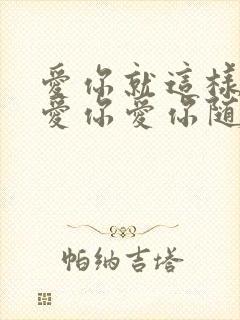 愛你就這樣
愛你愛你随
帕納吉塔